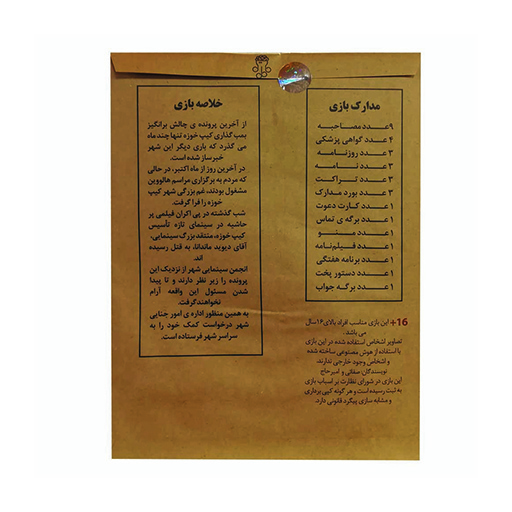 مدارک بازی
۹ عدد مصاحبه
۴ عدد گواهی پزشکی
۳ عدد روزنامه
۳ عدد نامه
۳ عدد تراکت
۳ عدد بورد مدارک
۱ عدد کارت دعوت
۱ عدد برگه ی تماس
۱ عدد منو
۱ عدد فیلم‌نامه
۱ عدد برنامه هفتگی
۱ عدد دستور پخت
۱ عدد برگه جواب
+16 این بازی مناسب افراد بالای ۱۶ سال
می باشد.
تصاویر اشخاص استفاده شده در این بازی
با استفاده از هوش مصنوعی ساخته شده
و اشخاص وجود خارجی ندارند.
نویسندگان: صفائی و امیرحاج
این بازی در شورای نظارت بر اسباب بازی
به ثبت رسیده است و هر گونه کپی برداری
و مشابه سازی پیگرد قانونی دارد.
خلاصه بازی
از آخرین پرونده ی چالش برانگیز
بمب گذاری کیپ خوزه تنها چند ماه
می گذرد که باری دیگر این شهر
خبرساز شده است.
در آخرین روز از ماه اکتبر، در حالی
که مردم به برگزاری مراسم هالووین
مشغول بودند، غم بزرگی شهر کیپ
خوزه را فرا گرفت.
شب گذشته در پی اکران فیلمی پر
حاشیه در سینمای تازه تأسیس
کیپ خوزه، منتقد بزرگ سینمایی،
آقای دیوید ماندانا، به قتل رسیده
اند.
انجمن سینمایی شهر از نزدیک این
پرونده را زیر نظر دارند و تا پیدا
شدن مسئول این واقعه آرام
نخواهند گرفت.
به همین منظور اداره ی امور جنایی
شهر درخواست کمک خود را به
سراسر شهر فرستاده است.